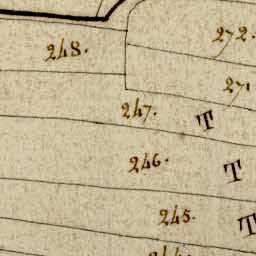 272.
248.
271
247.
T
246.
T
245.
T
244.